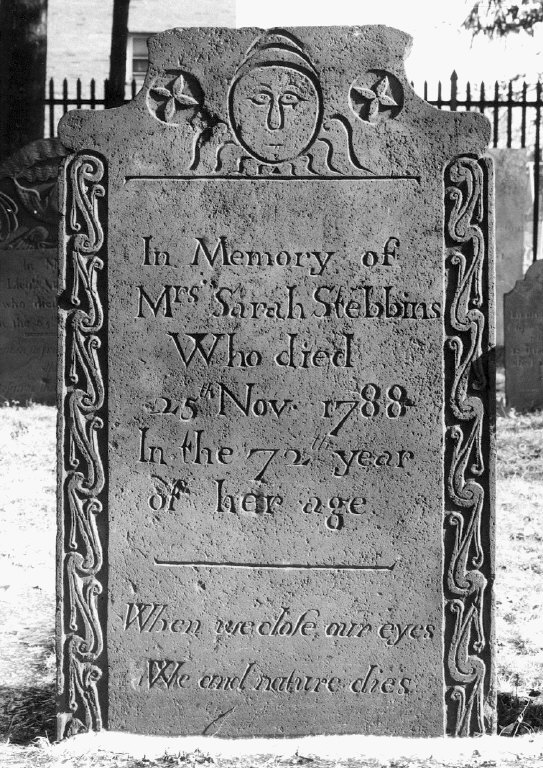 In Memory of
Mrs Sarah Stebbins
Who died
25th Nov. 1788
In the 72th year
of her age.
When we close our eyes
We and nature dies